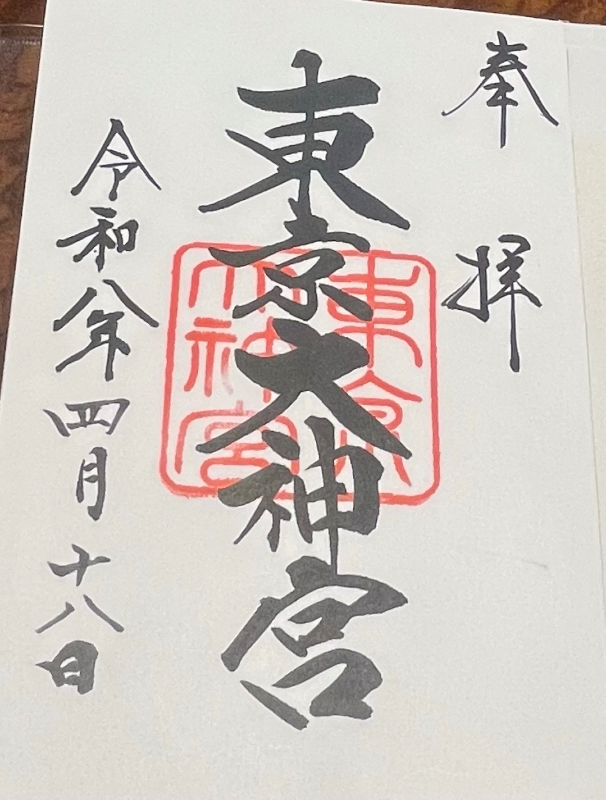 奉拝
東京大神宮
東京大神宮
令和八年四月十八日